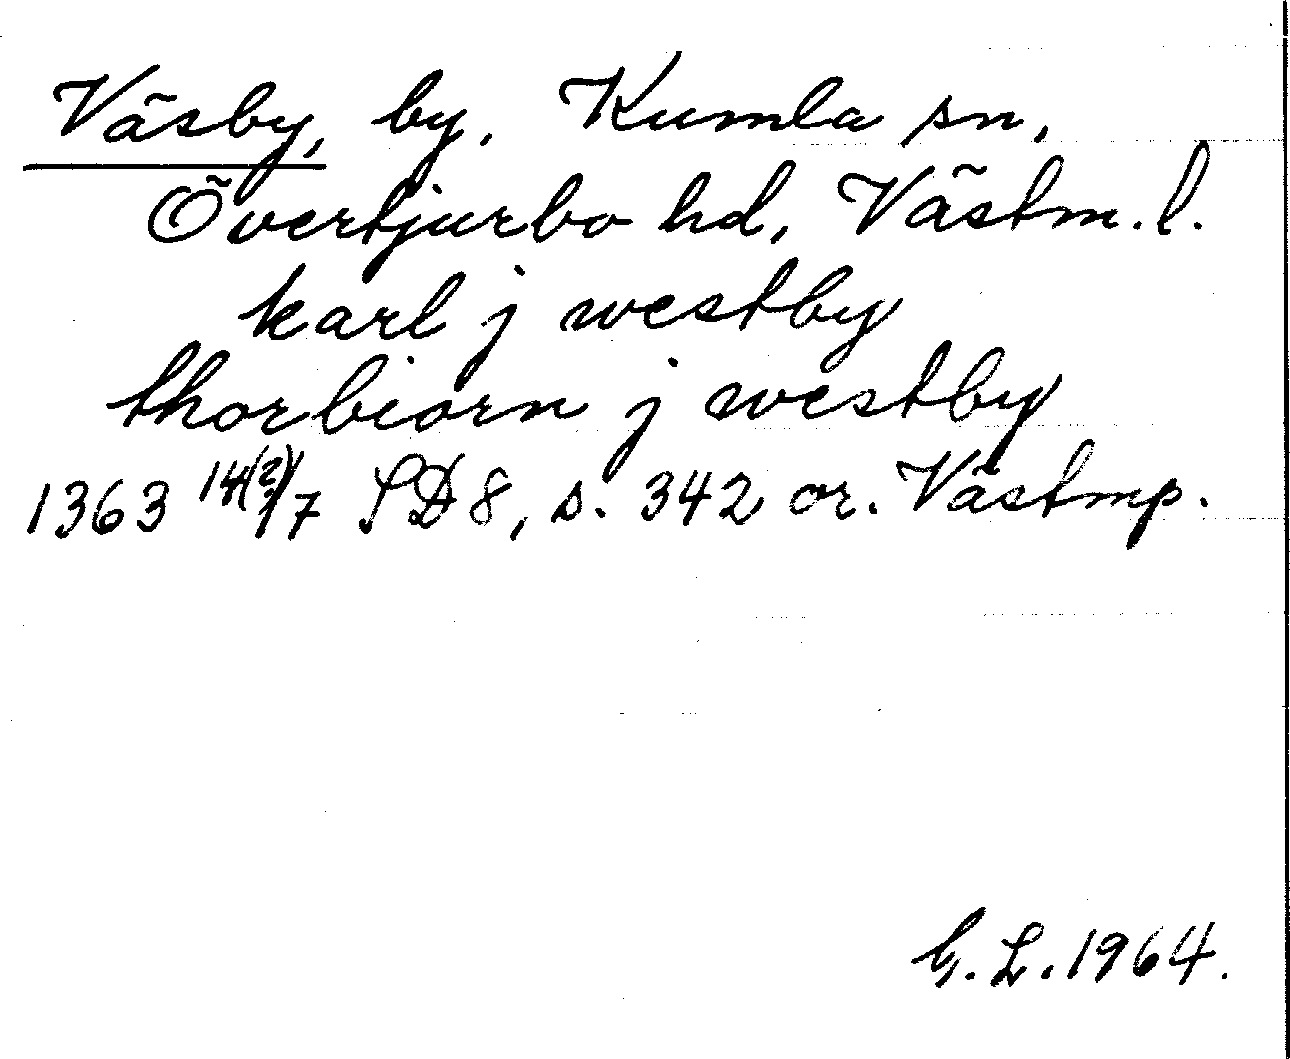 Väsby, by, Kumla sn,
Övertjurbo hd, Västm. l.
karl j westby
thorbiorn j westby
1363 14(?)/7 SD 8, s. 342 or. Västmp.
G. L. 1964.